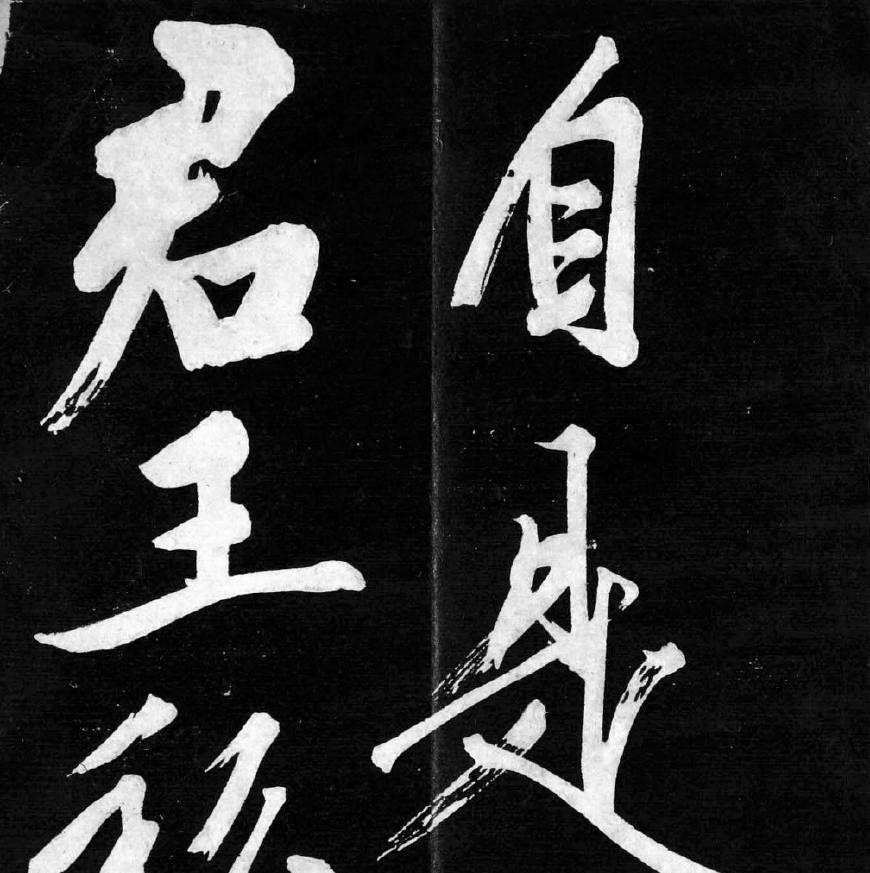 自是
君王